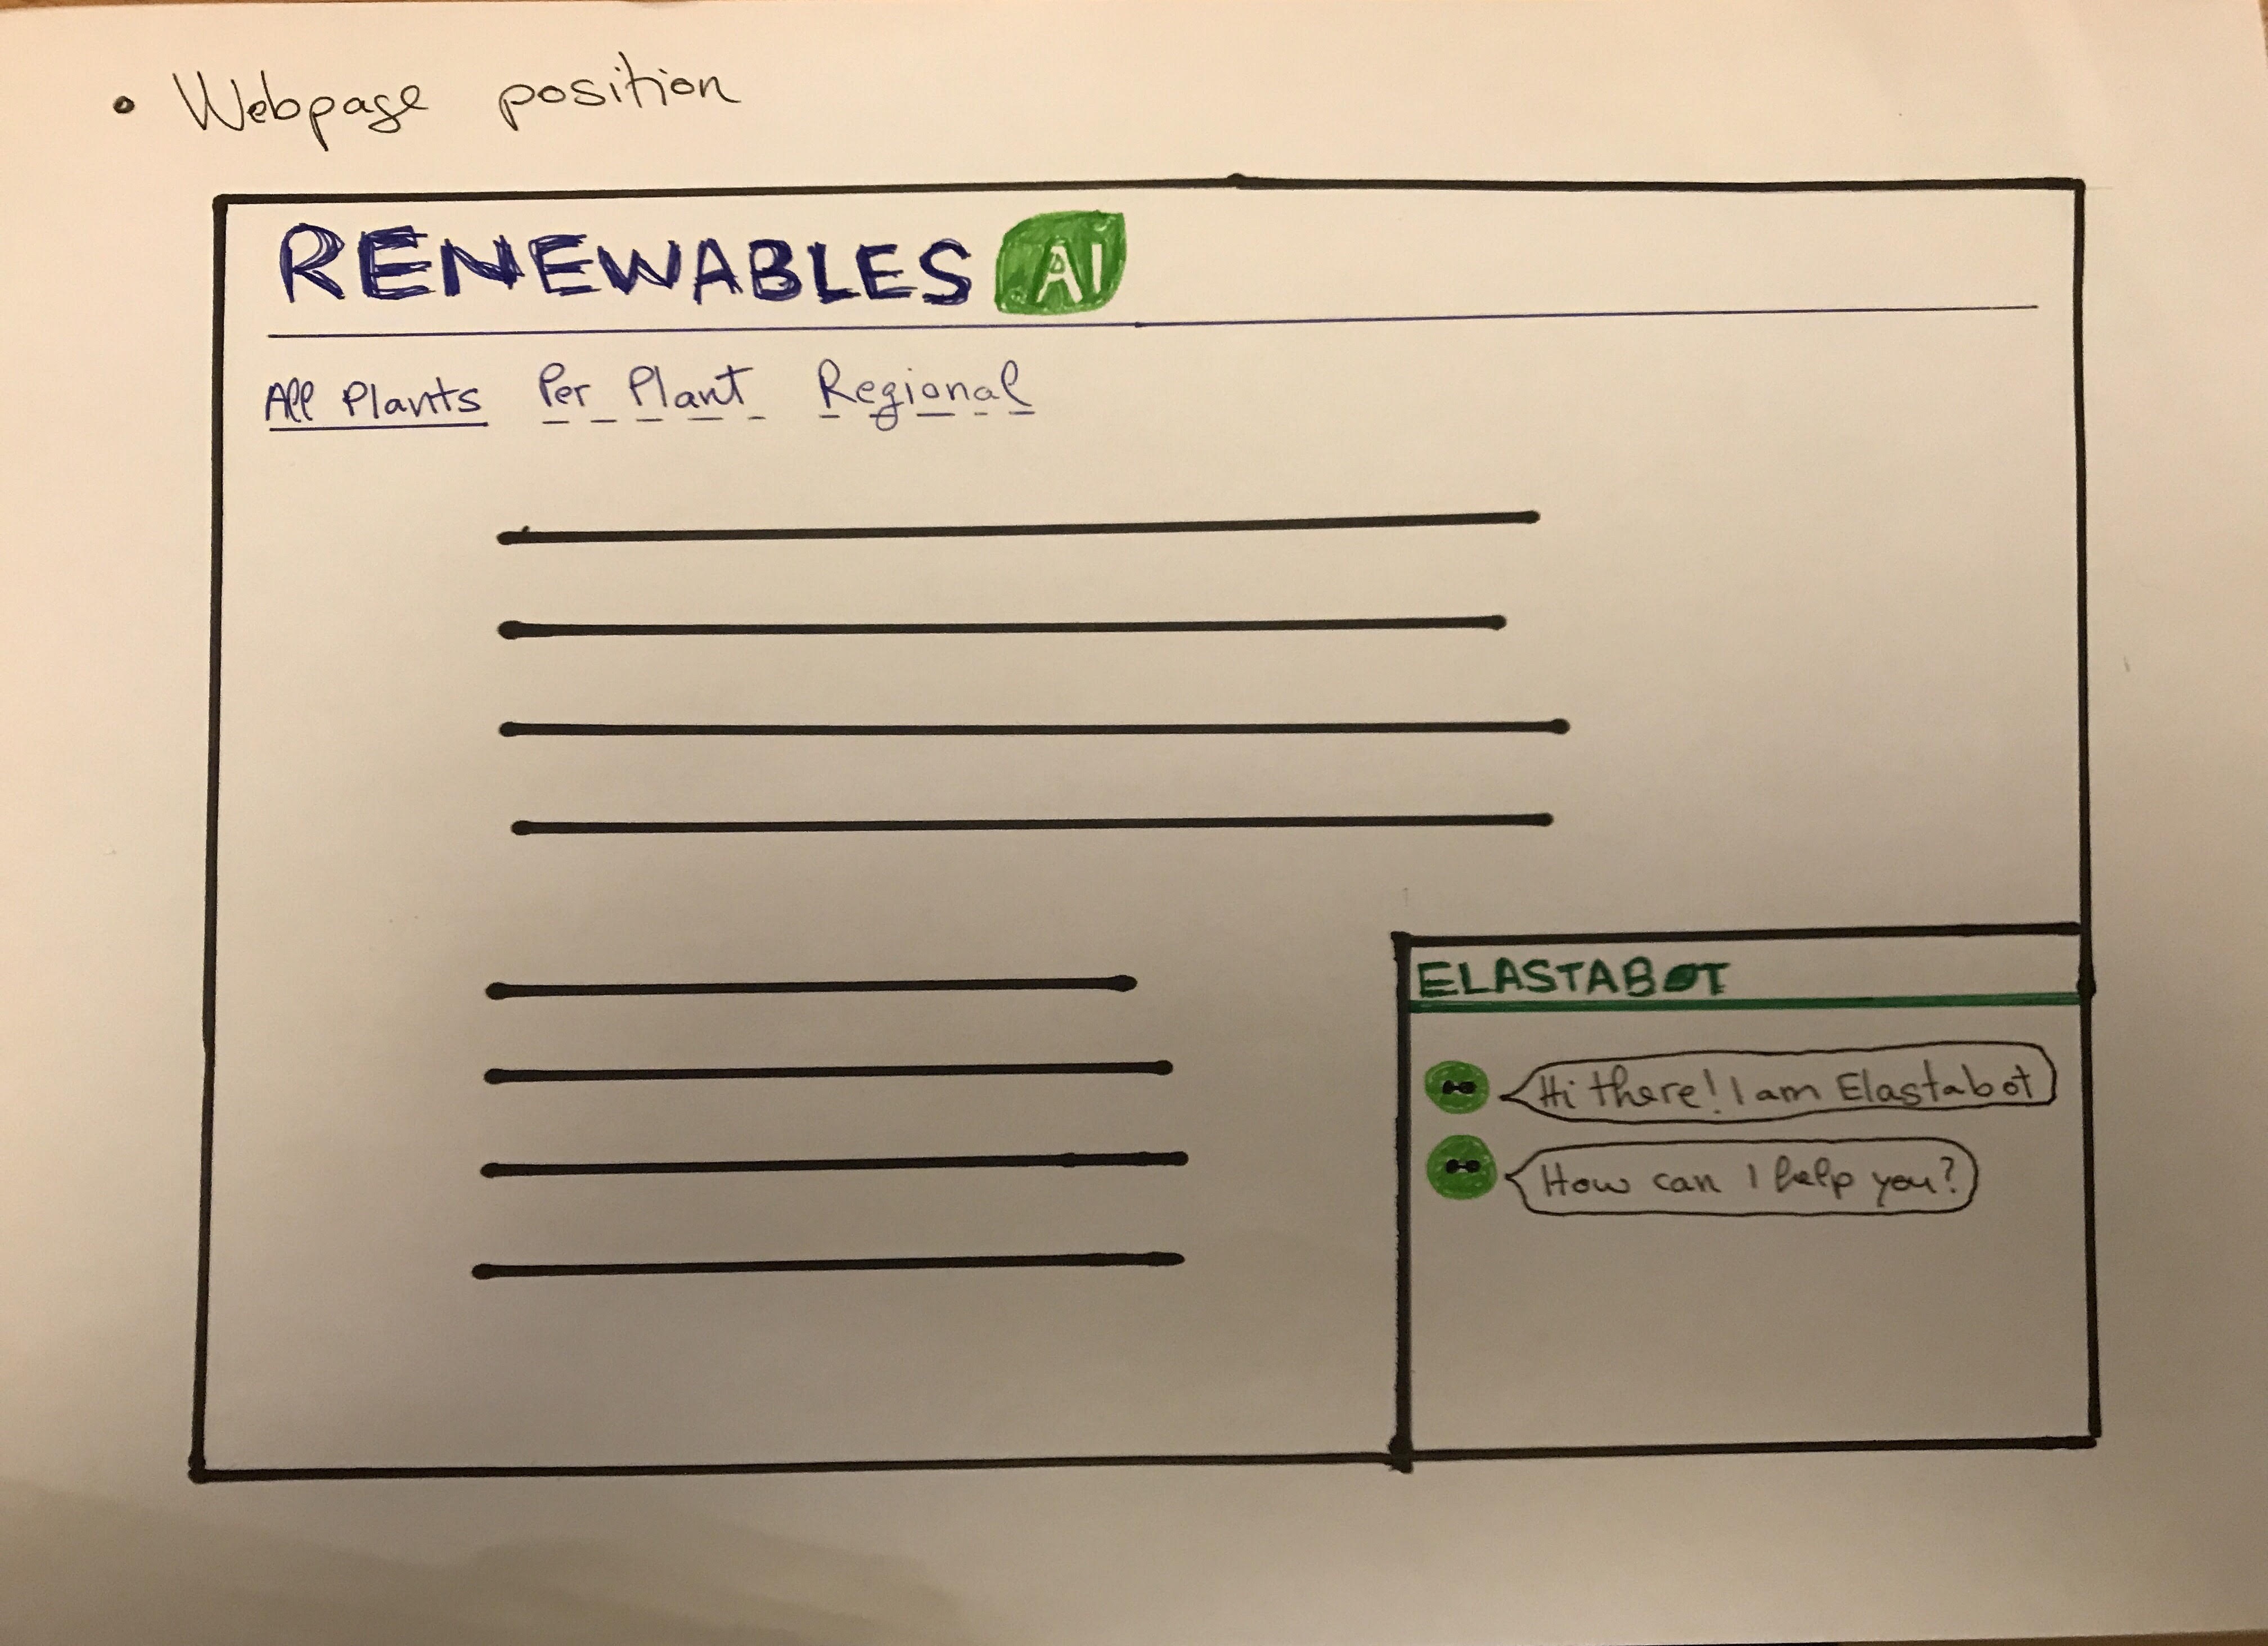 • Webpage position
RENEWABLES AI
All Plants Per Plant Regional
ELASTABOT
Hi there! I am Elastabot
How can I help you?